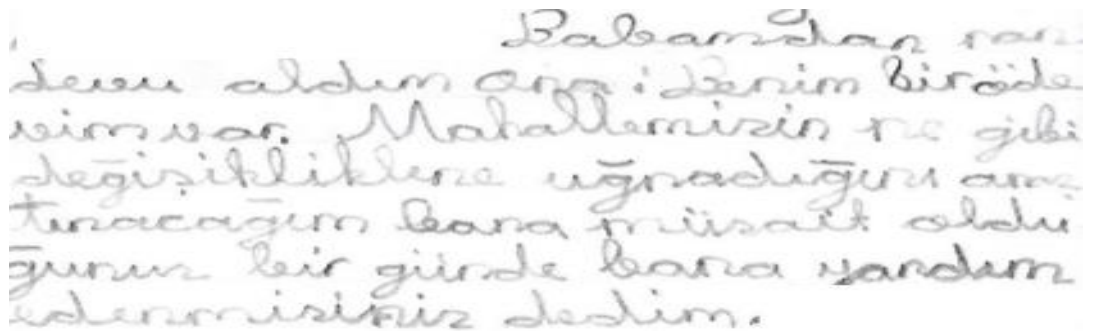 Babamdan ran
devu aldım Ona: Benim bir öde
vim var. Mahallemizin ne gibi
değişikliklere uğradığını araş
tıracağım bana müsait oldu
ğunuz bir günde bana yardım
edermisiniz dedim.